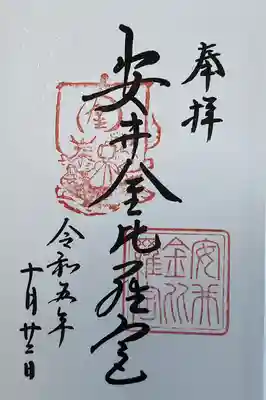 奉拝
安井金比羅宮
令和五年
十月廿二日
安井
金比
羅宮